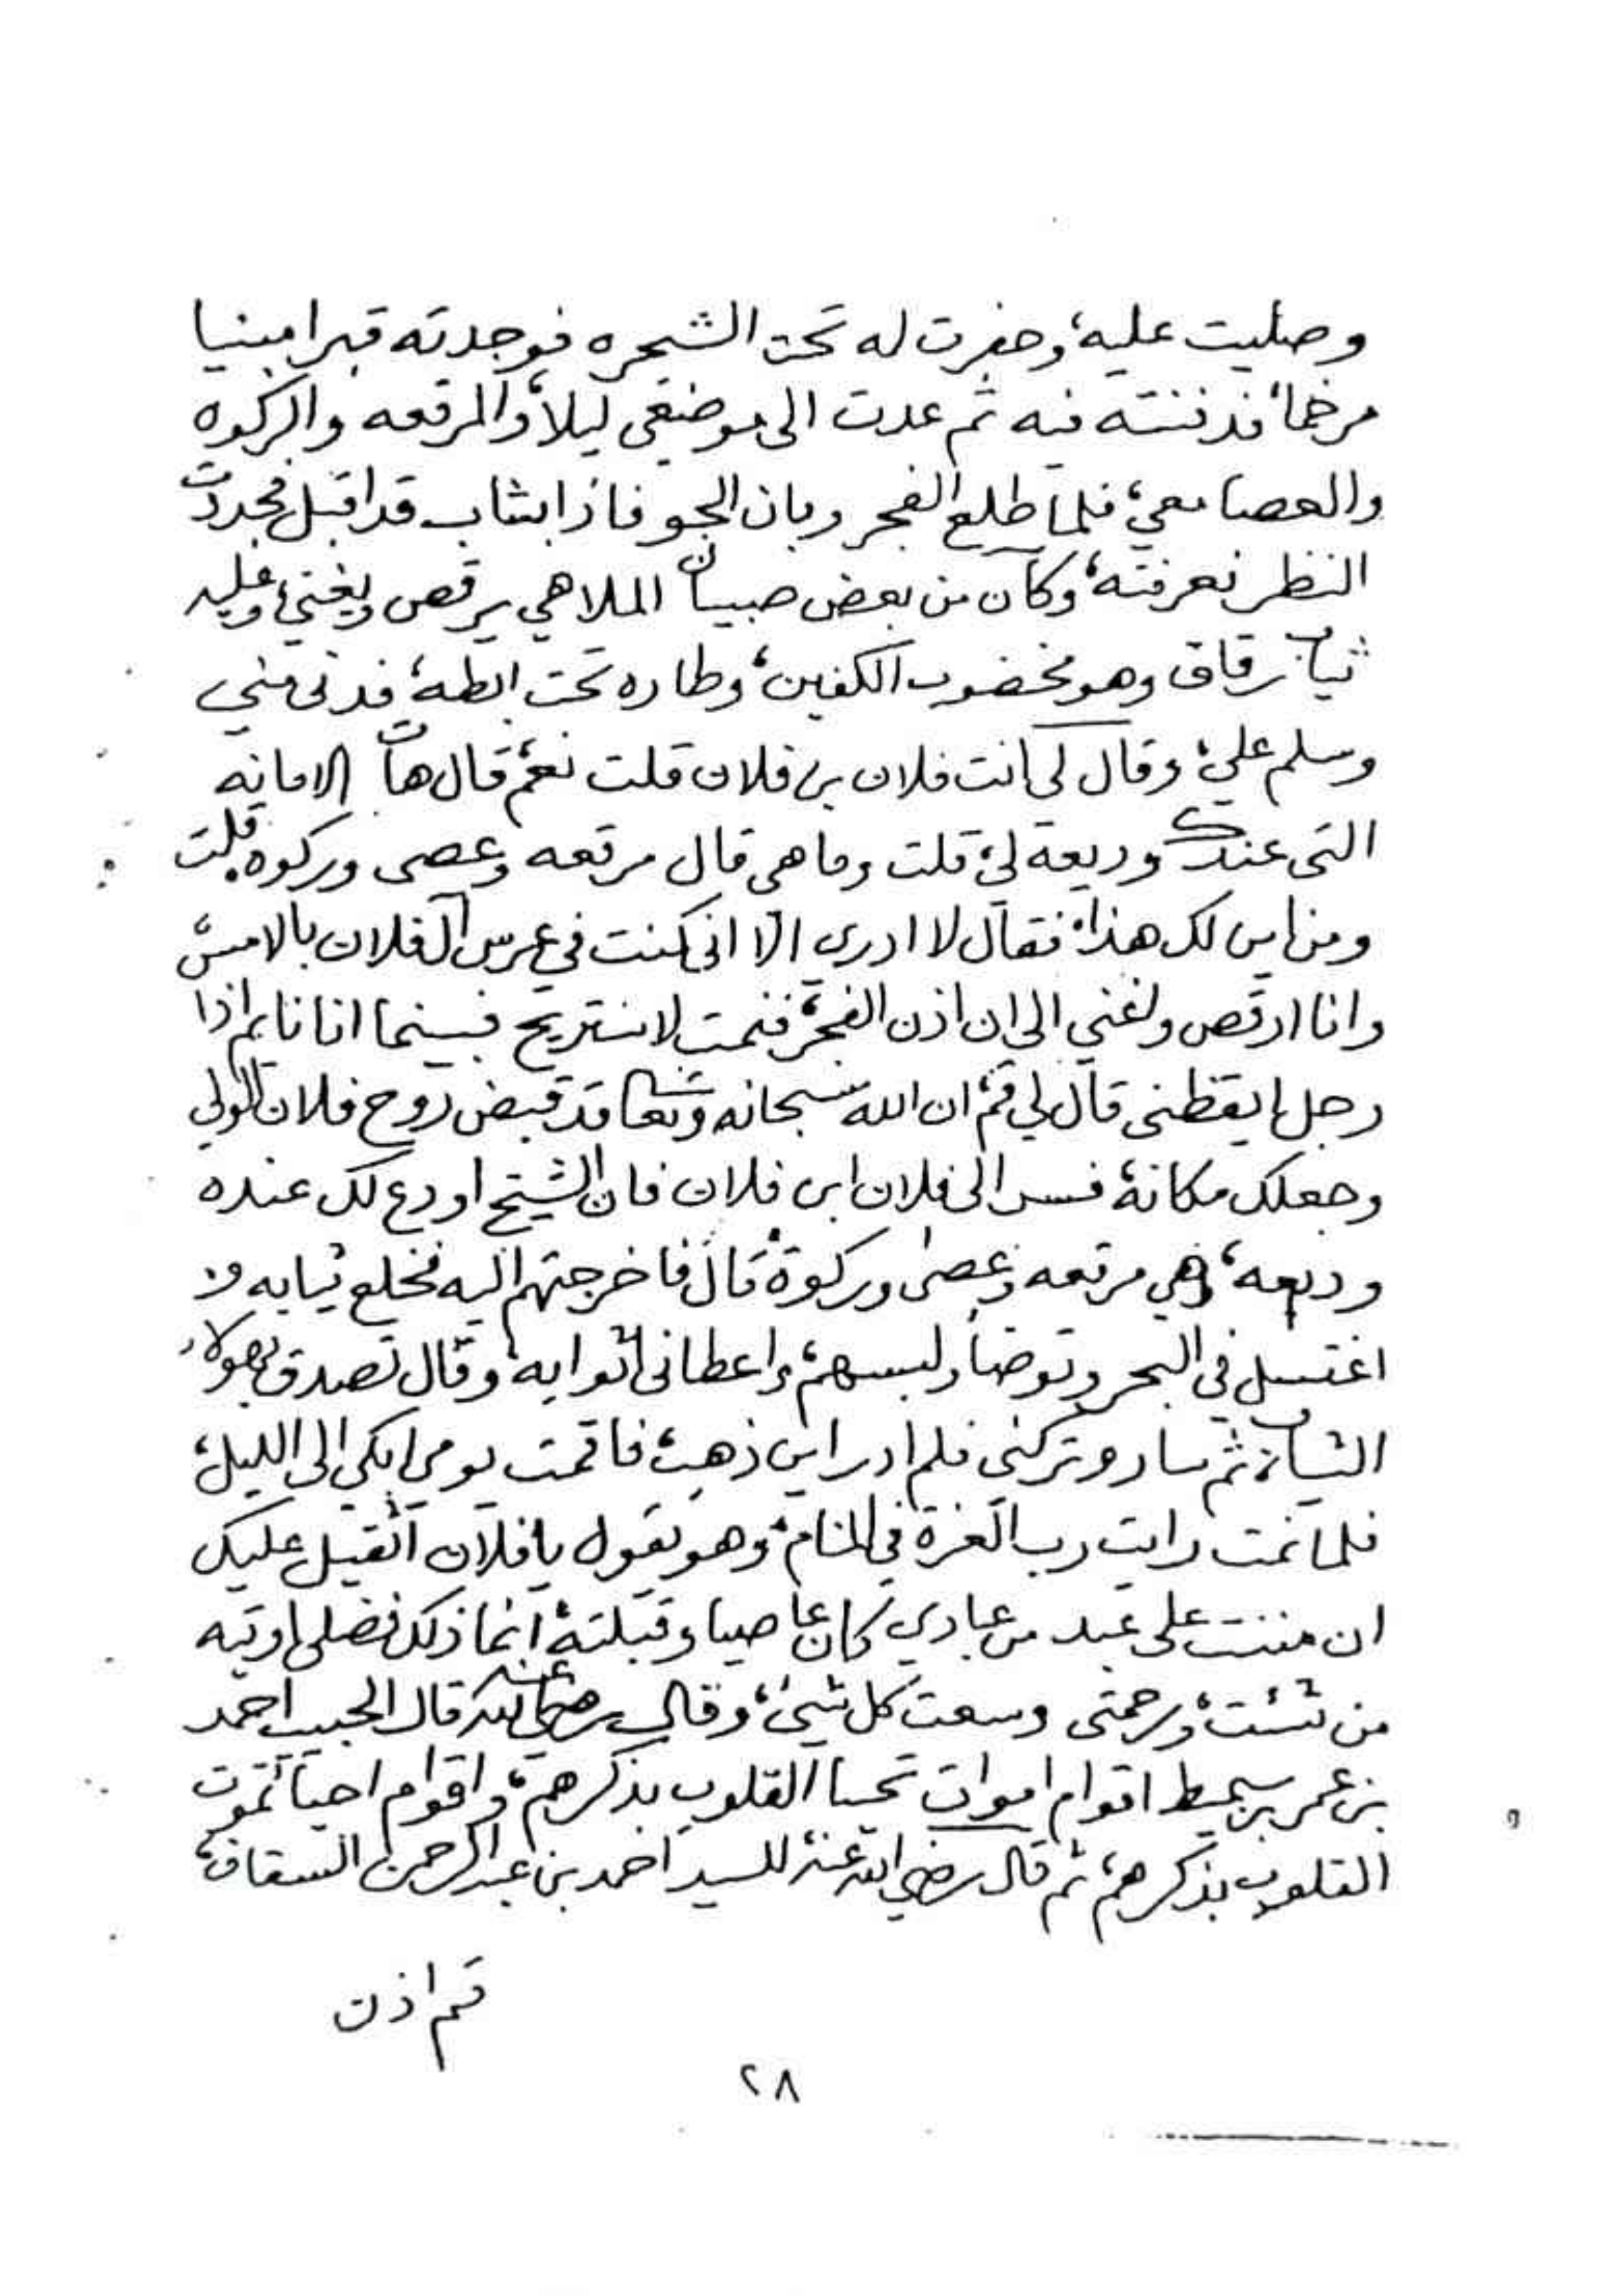 وصليت عليه، وحفرت له تحت الشجره فوجدته قبرا مبنيا
مرخما، فدفنته فيه ثم عدت الى موضعي ليلا، والمرقعه والركوه
والعصا معي، فلما طلع الفجر وبان الجو فاذا بشاب قد اقبل فجددت
النظر فعرفته، وكان من بعض صبيان الملاهي يرقص ويغني، وعليه
ثياب رقاق وهو مخضوب الكفين، وطاره تحت ابطه، فدنى مني
وسلم علي، وقال لي انت فلان بن فلان قلت نعم، قال هات الامانه
التى عندك وديعة لي، قلت وما هى قال مرقعه وعصى وركوه، قلت
ومن اين لك هذا، فقال لا ادرى الا انى كنت في عرس آل فلان بالامس
وانا ارقص واغني الى ان اذن الفجر، فنمت لاستريح فبينما انا نايم اذا
رجل ايقظنى قال لي قم، ان الله سبحانه وتعا قد قبض روح فلان الولي
وجعلك مكانه، فسر الى فلان ابن فلان فان الشيخ اودع لك عنده
وديعه، وهي مرقعه وعصى وركوة، قال فاخرجتهم اليه فخلع ثيابه و
اغتسل في البحر وتوضأ ولبسهم، واعطانى اثوابه، وقال تصدق بهولاء
الثياب، ثم سار وتركنى فلم ادر اين ذهب، فاقمت يومى ابكي الى الليل،
فلما نمت رايت رب العزة في المنام، وهو يقول يا فلان اثقيل عليك
ان مننت على عبد من عبادي كان عاصيا وقبلته، انما ذلك فضلى اوتيه
من شئت، ورحمتى وسعت كل شيئ، وقال رضي الله عنه قال الحبيب احمد
بن عمر بن سميط اقوام اموات تحيا القلوب بذكرهم، واقوام احيا تموت
القلوب بذكرهم، ثم قال رضي الله عنه للسيد احمد بن عبد الرحمن السقاف،
قم اذن
٢٨